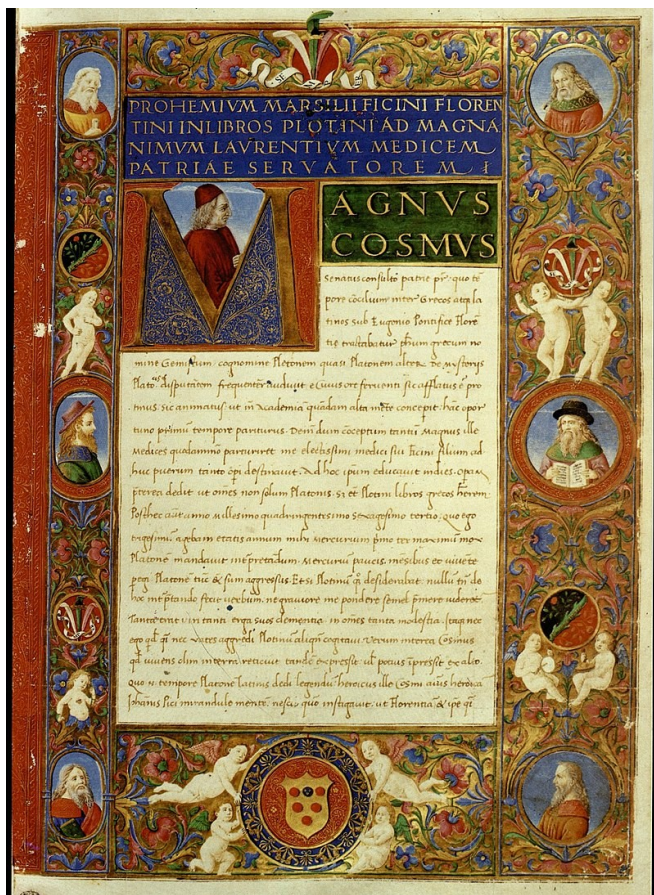 SEMPER
PROHEMIVM MARSILII FICINI FLOREN
TINI IN LIBROS PLOTINI AD MAGNA
NIMVM LAVRENTIVM MEDICEM
PATRIAE SERVATOREM
M
AGNVS
COSMVS
Senatus consulto patrie pr̄: quo te
pore cōcilium inter Grecos atq̄ la
tinos sub Eugenio Pontifice Flore
tie tractabatur phūm grecum no
mine Gemistum cognomine Pletonem quasi Platonem alterū de mysteriis
disputātem frequenter audiuit e cuius ore feruenti sic afflatus ē pro
tinus sic animatus ut in Academia quadam alta mēte concepit: hāc opor
tuno primū tempore pariturus. Dein dum cōceptum tantū Magnus ille
Medices quodammo parturiret me electissimi medici sui Ficini filium ad
huc puerum tanto opi destinauit. Ad hoc ipm educauit indies. Opam
pterea dedit ut omēs non solum Platonis. Sz et Plotini libros grecos herem
Posthec aut anno Millesimo quadringentesimo sexagesimo tertio. quo ego
trigesimū agebam etatis annum mihi Mercurium pmo ter maximū mox
Platonē mandauit interpretādum. Mercuriū paucis mēsibus eo uiuēte
pegi Platonē tūc & sum aggressus. Etsi Plotinū q̄ desiderabat. nullū tn̄ de
hoc interptando fecit uerbum. ne grauiore me pondere semel pmere uideret
Tanta erat uiri tanti erga suos clementia in omes tanta modestia. Itaq nec
ego qd q̄ nec uates aggredi Plotinū aliqn cogitaui Verum interea Cosmus
qd uiuens olim in terra reticuit tandē expressit ul potius īpressit ex alto.
Quo n. tempore Platonē latinis dedi legendū heroicus ille Cosmi aius heroica
Iohānis Pici mirandule mentē. nescio quo instigauit ut Florentiā & ipe qi